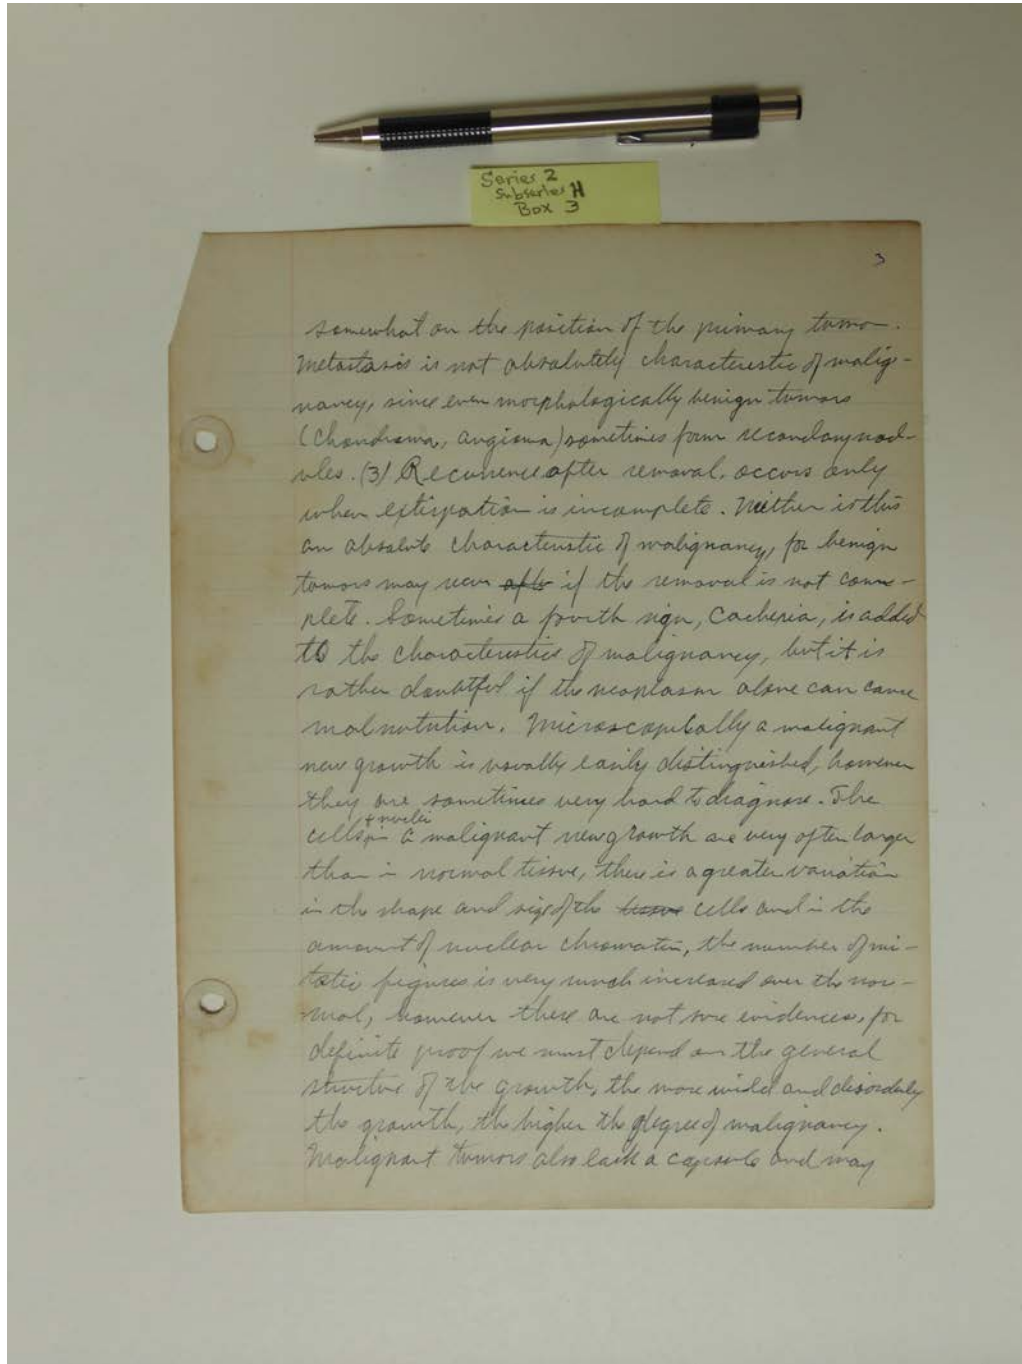 Series 2
Subseries H
Box 3
3
somewhat on the position of the primary tumor.
Metastasis is not absolutely characteristic of malig-
nancy, since even morphologically benign tumors
(Chondroma, angioma) sometimes form secondary nod-
ules. (3) Recurrence after removal, occurs only
when extirpation is incomplete. Neither is this
an absolute characteristic of malignancy, for benign
tumors may recur after if the removal is not com-
plete. Sometimes a fourth sign, Cachexia, is added
to the characteristics of malignancy, but it is
rather doubtful if the neoplasm alone can cause
malnutrition. Microscopically a malignant
new growth is usually easily distinguished, however
they are sometimes very hard to diagnose. The
+ nuclei
cells in a malignant new growth are very often larger
than in normal tissue, there is a greater variation
in the shape and size of the tissue cells and in the
amount of nuclear chromatin, the number of mi-
totic figures is very much increased over the nor-
mal, however these are not sure evidences, for
definite proof we must depend on the general
structure of the growth, the more wild and disorderly
the growth, the higher the degree of malignancy.
Malignant tumors also lack a capsule and may